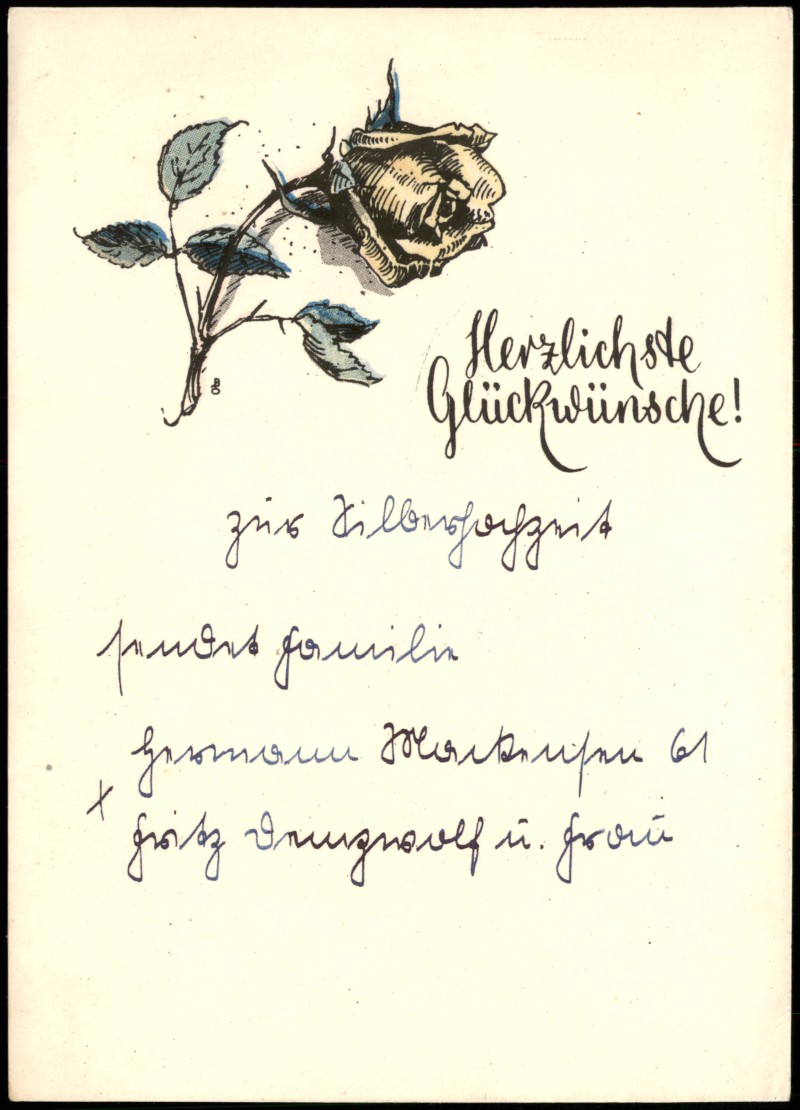 Herzlichste
Glückwünsche!
zur Silberhochzeit
sendet Familie
Hermann Mackensen 61
x Fritz Demzwolf u. Frau